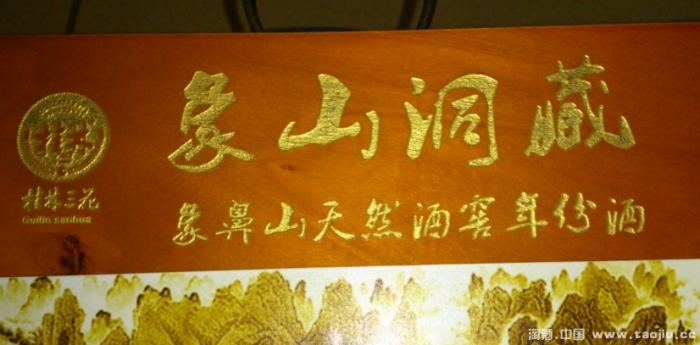 象山洞藏
桂林三花
Guilin sanhua
象鼻山天然酒窖年份酒
淘酒.中国 www.taojiu.cc